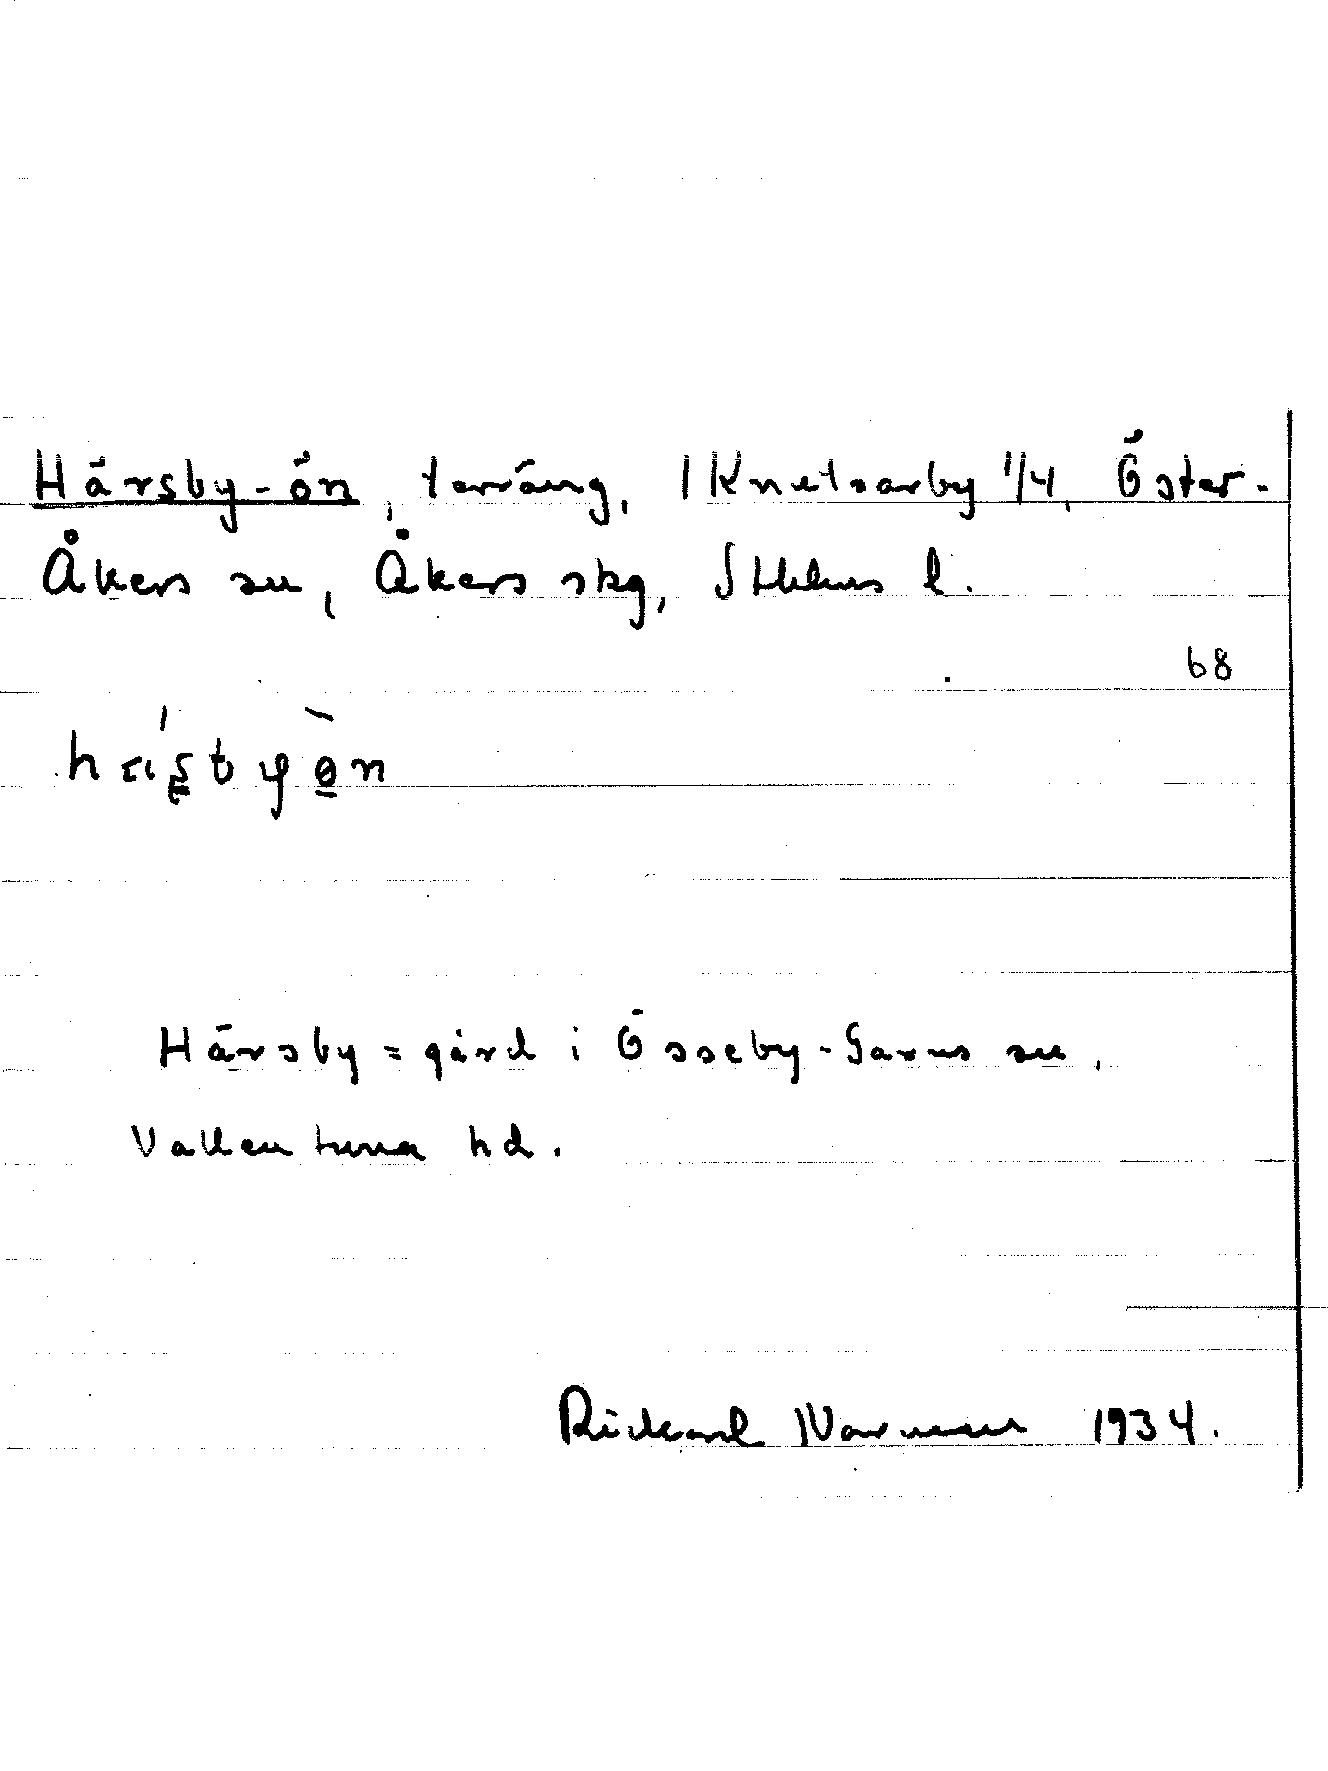 Härsby-ön, terräng, Knutsarby 1/4, Öster-
Åkers sn, Åkers skg, Sthlms l.
68
Härsby = gård i Össeby-Garns sn,
Vallentuna hd.
Rickard Norman 1934.